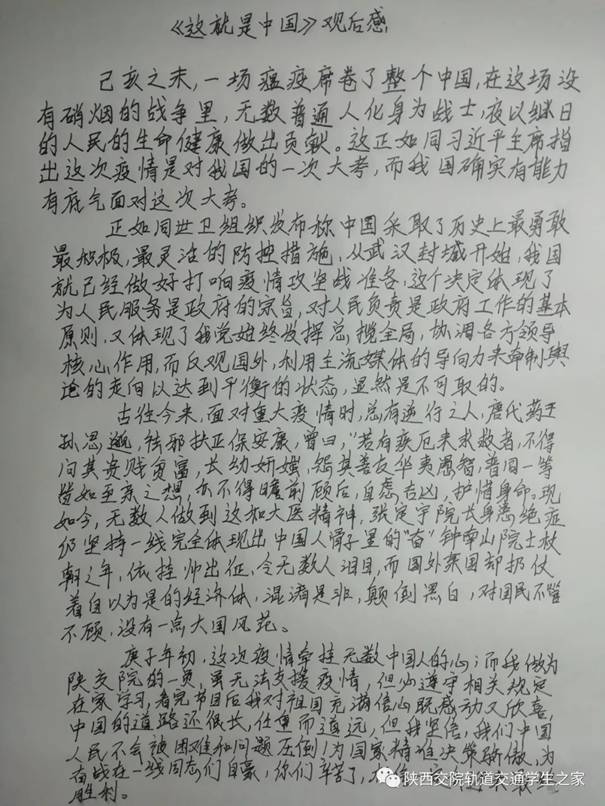 《这就是中国》观后感
己亥之末，一场瘟疫席卷了整个中国，在这场没
有硝烟的战争里，无数普通人化身为战士，夜以继日
的人民的生命健康做出贡献。这正如同习近平主席指
出这次疫情是对我国的一次大考，而我国确实有能力
有底气面对这次大考。
正如同世卫组织发布称中国采取了历史上最勇敢
最积极，最灵活的防控措施，从武汉封城开始，我国
就已经做好打响疫情攻坚战准备，这个决定体现了
为人民服务是政府的宗旨，对人民负责是政府工作的基本
原则，又体现了我党始终发挥总揽全局，协调各方领导
核心作用，而反观国外，利用主流媒体的导向力来牵制舆
论的走向以达到平衡的状态，显然是不可取的。
古往今来，面对重大疫情时，总有逆行之人，唐代药王
孙思邈，祛邪扶正保安康，曾曰，"若有疾厄来求救者，不得
问其贵贱贫富，长幼妍媸，怨其善友华夷愚智，普同一等
皆如至亲之想，亦不得瞻前顾后，自虑吉凶，护惜身命。现
如今，无数人做到这种大医精神，张定宇院长身患绝症
仍坚持一线完全体现出中国人骨子里的"奋"钟南山院士杖
朝之年，依挂帅出征，令无数人泪目，而国外某国却扔仗
着自以为是的经济体，混淆是非，颠倒黑白，对国民不管
不顾，没有一点大国风范。
庚子年初，这次疫情牵挂无数中国人的心；而我做为
陕交院的一员，虽无法支援疫情，但必遵守相关规定
在家学习，看完节目后我对祖国充满信心既感动又欣喜，
中国的道路还很长，任重而道远，但我坚信，我们中国
人民不会被困难和问题压倒！为国家精准决策骄傲，为
奋战在一线同志们自豪，你们辛苦了，
胜利。
陕西交院轨道交通学生之家